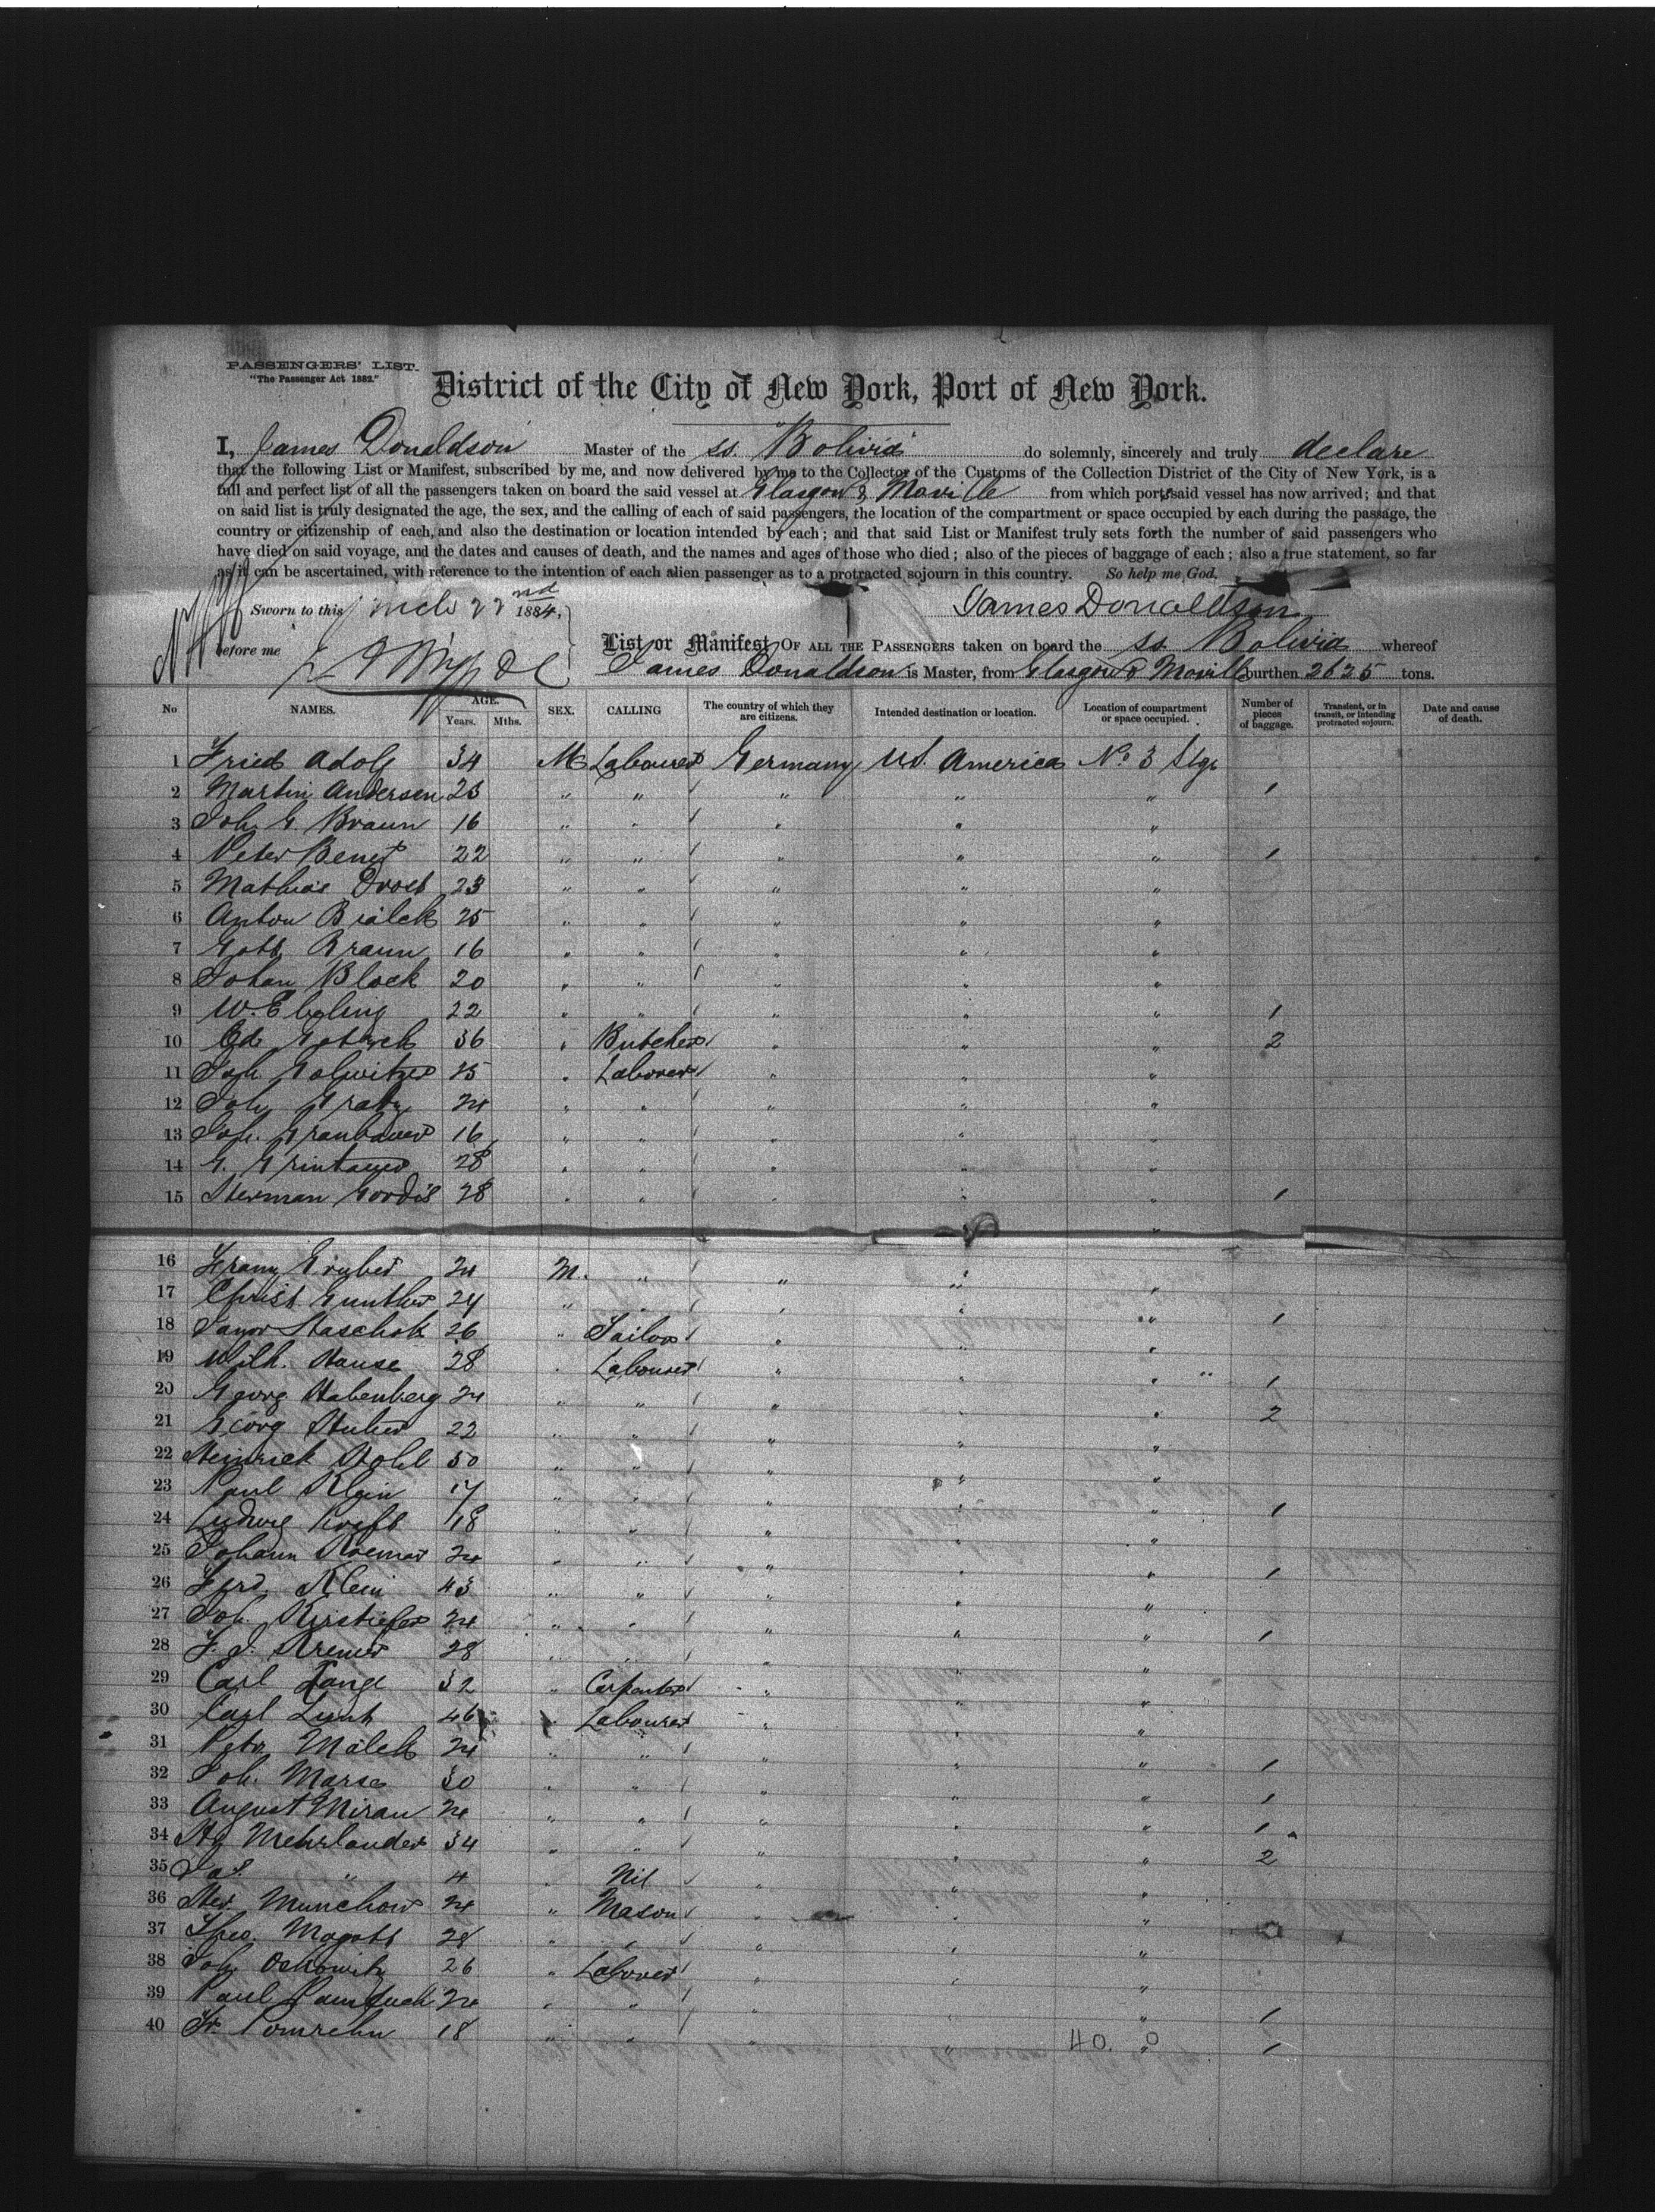 PASSENGERS' LIST.
"The Passenger Act 1882."
District of the City of New York, Port of New York.
I, James Donaldson Master of the ss. Bolivia do solemnly, sincerely and truly declare
that the following List or Manifest, subscribed by me, and now delivered by me to the Collector of the Customs of the Collection District of the City of New York, is a
full and perfect list of all the passengers taken on board the said vessel at Glasgow & Moville from which ports said vessel has now arrived; and that
on said list is truly designated the age, the sex, and the calling of each of said passengers, the location of the compartment or space occupied by each during the passage, the
country or citizenship of each, and also the destination or location intended by each; and that said List or Manifest truly sets forth the number of said passengers who
have died on said voyage, and the dates and causes of death, and the names and ages of those who died; also of the pieces of baggage of each; also a true statement, so far
as it can be ascertained, with reference to the intention of each alien passenger as to a protracted sojourn in this country. So help me God,
Sworn to this Mch 22nd 1884, James Donaldson
before me
List or Manifest OF ALL THE PASSENGERS taken on board the ss. Bolivia whereof
James Donaldson is Master, from Glasgow & Moville burthen 2625 tons.
No NAMES. AGE. Years. Mths. SEX. CALLING The country of which they are citizens. Intended destination or location. Location of compartment or space occupied. Number of pieces of baggage. Transient, or in transit, or intending protracted sojourn. Date and cause of death.
1 Fried Adolf 34 M Labourer Germany U.S. America No. 3 Stge
2 Martin Andersen 23 " " " " " 1
3 Joh G. Braun 16 " " " " "
4 Peter 22 " " " " " 1
5 Mathias Drost 23 " " " " "
6 Anton Bialek 25 " " " " "
7 Gottl Braun 16 " " " " "
8 Johan Block 20 " " " " "
9 W. Ebeling 22 " " " " " 1
10 Ed. 36 " Butcher " " " 2
11 Joh. 25 " Laborer " " "
12 Joh 24 " " " " "
13 Joh. 16 " " " " "
14 G. 28 " " " " "
15 Herman 28 " " " " " 1
16 Franz Gruber 24 M. " " " "
17 Christ. Gunther 24 " " " " " 1
18 26 " Tailor " " "
19 Wilh. Hause 28 " Labourer " " " 1
20 Georg Habenberg 24 " " " " " 2
21 Georg Huber 22 " " " " "
22 Heinrich Hohl 50 " " " " "
23 Paul Klein 17 " " " " " 1
24 Ludwig 18 " " " " "
25 Johann 24 " " " " " 1
26 Ferd. Klein 43 " " " " "
27 Joh. 24 " " " " " 1
28 F. J. Kremer 28 " " " " "
29 Carl Lange 32 " Carpenter " " "
30 Carl 46 " Labourer " " "
31 Peter Malek 24 " " " " " 1
32 Joh. Marse 30 " " " " " 1
33 August Miran 24 " " " " " 1
34 Hg Mehrlander 34 " " " " " 2
35 Jas. " 4 " Nil " " "
36 Her. Munchow 24 " Mason " " "
37 28 " " " " "
38 Joh. 26 " Laborer " " "
39 Paul 24 " " " " " 1
40 Fr. Pomrehn 18 " " " " " 1
40. 0